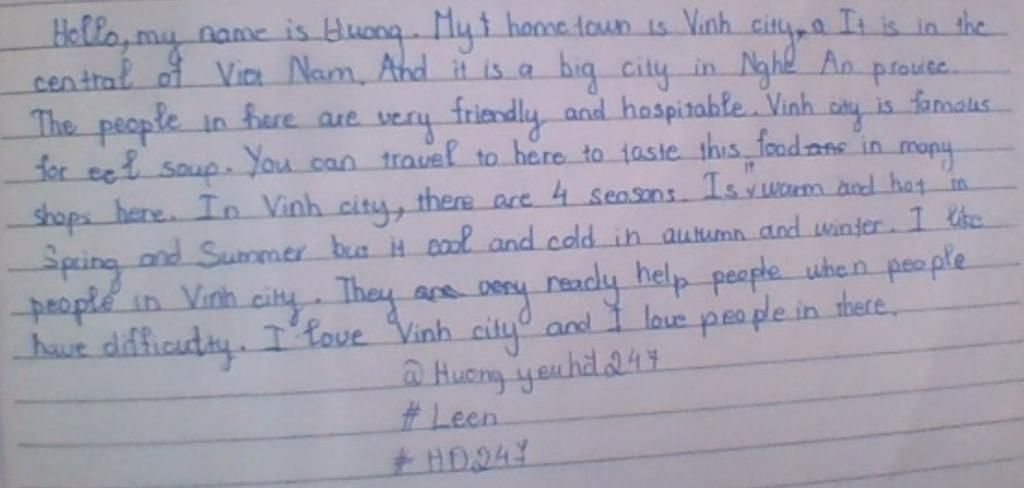 Hello, my name is Huong. My hometown is Vinh city, It is in the
central of Viet Nam. And it is a big city in Nghe An provce.
The people in here are very friendly and hospitable. Vinh city is famous
for eel soup. You can travel to here to taste this food in many
shops here. In Vinh city, there are 4 seasons. Is it warm and hot in
Spring and Summer but it cool and cold in autumn and winter. I like
people in Vinh city. They are very ready help people when people
have difficutty. I love Vinh city and I love people in there.
@Huong yeuhd247
# Leen
# HD247